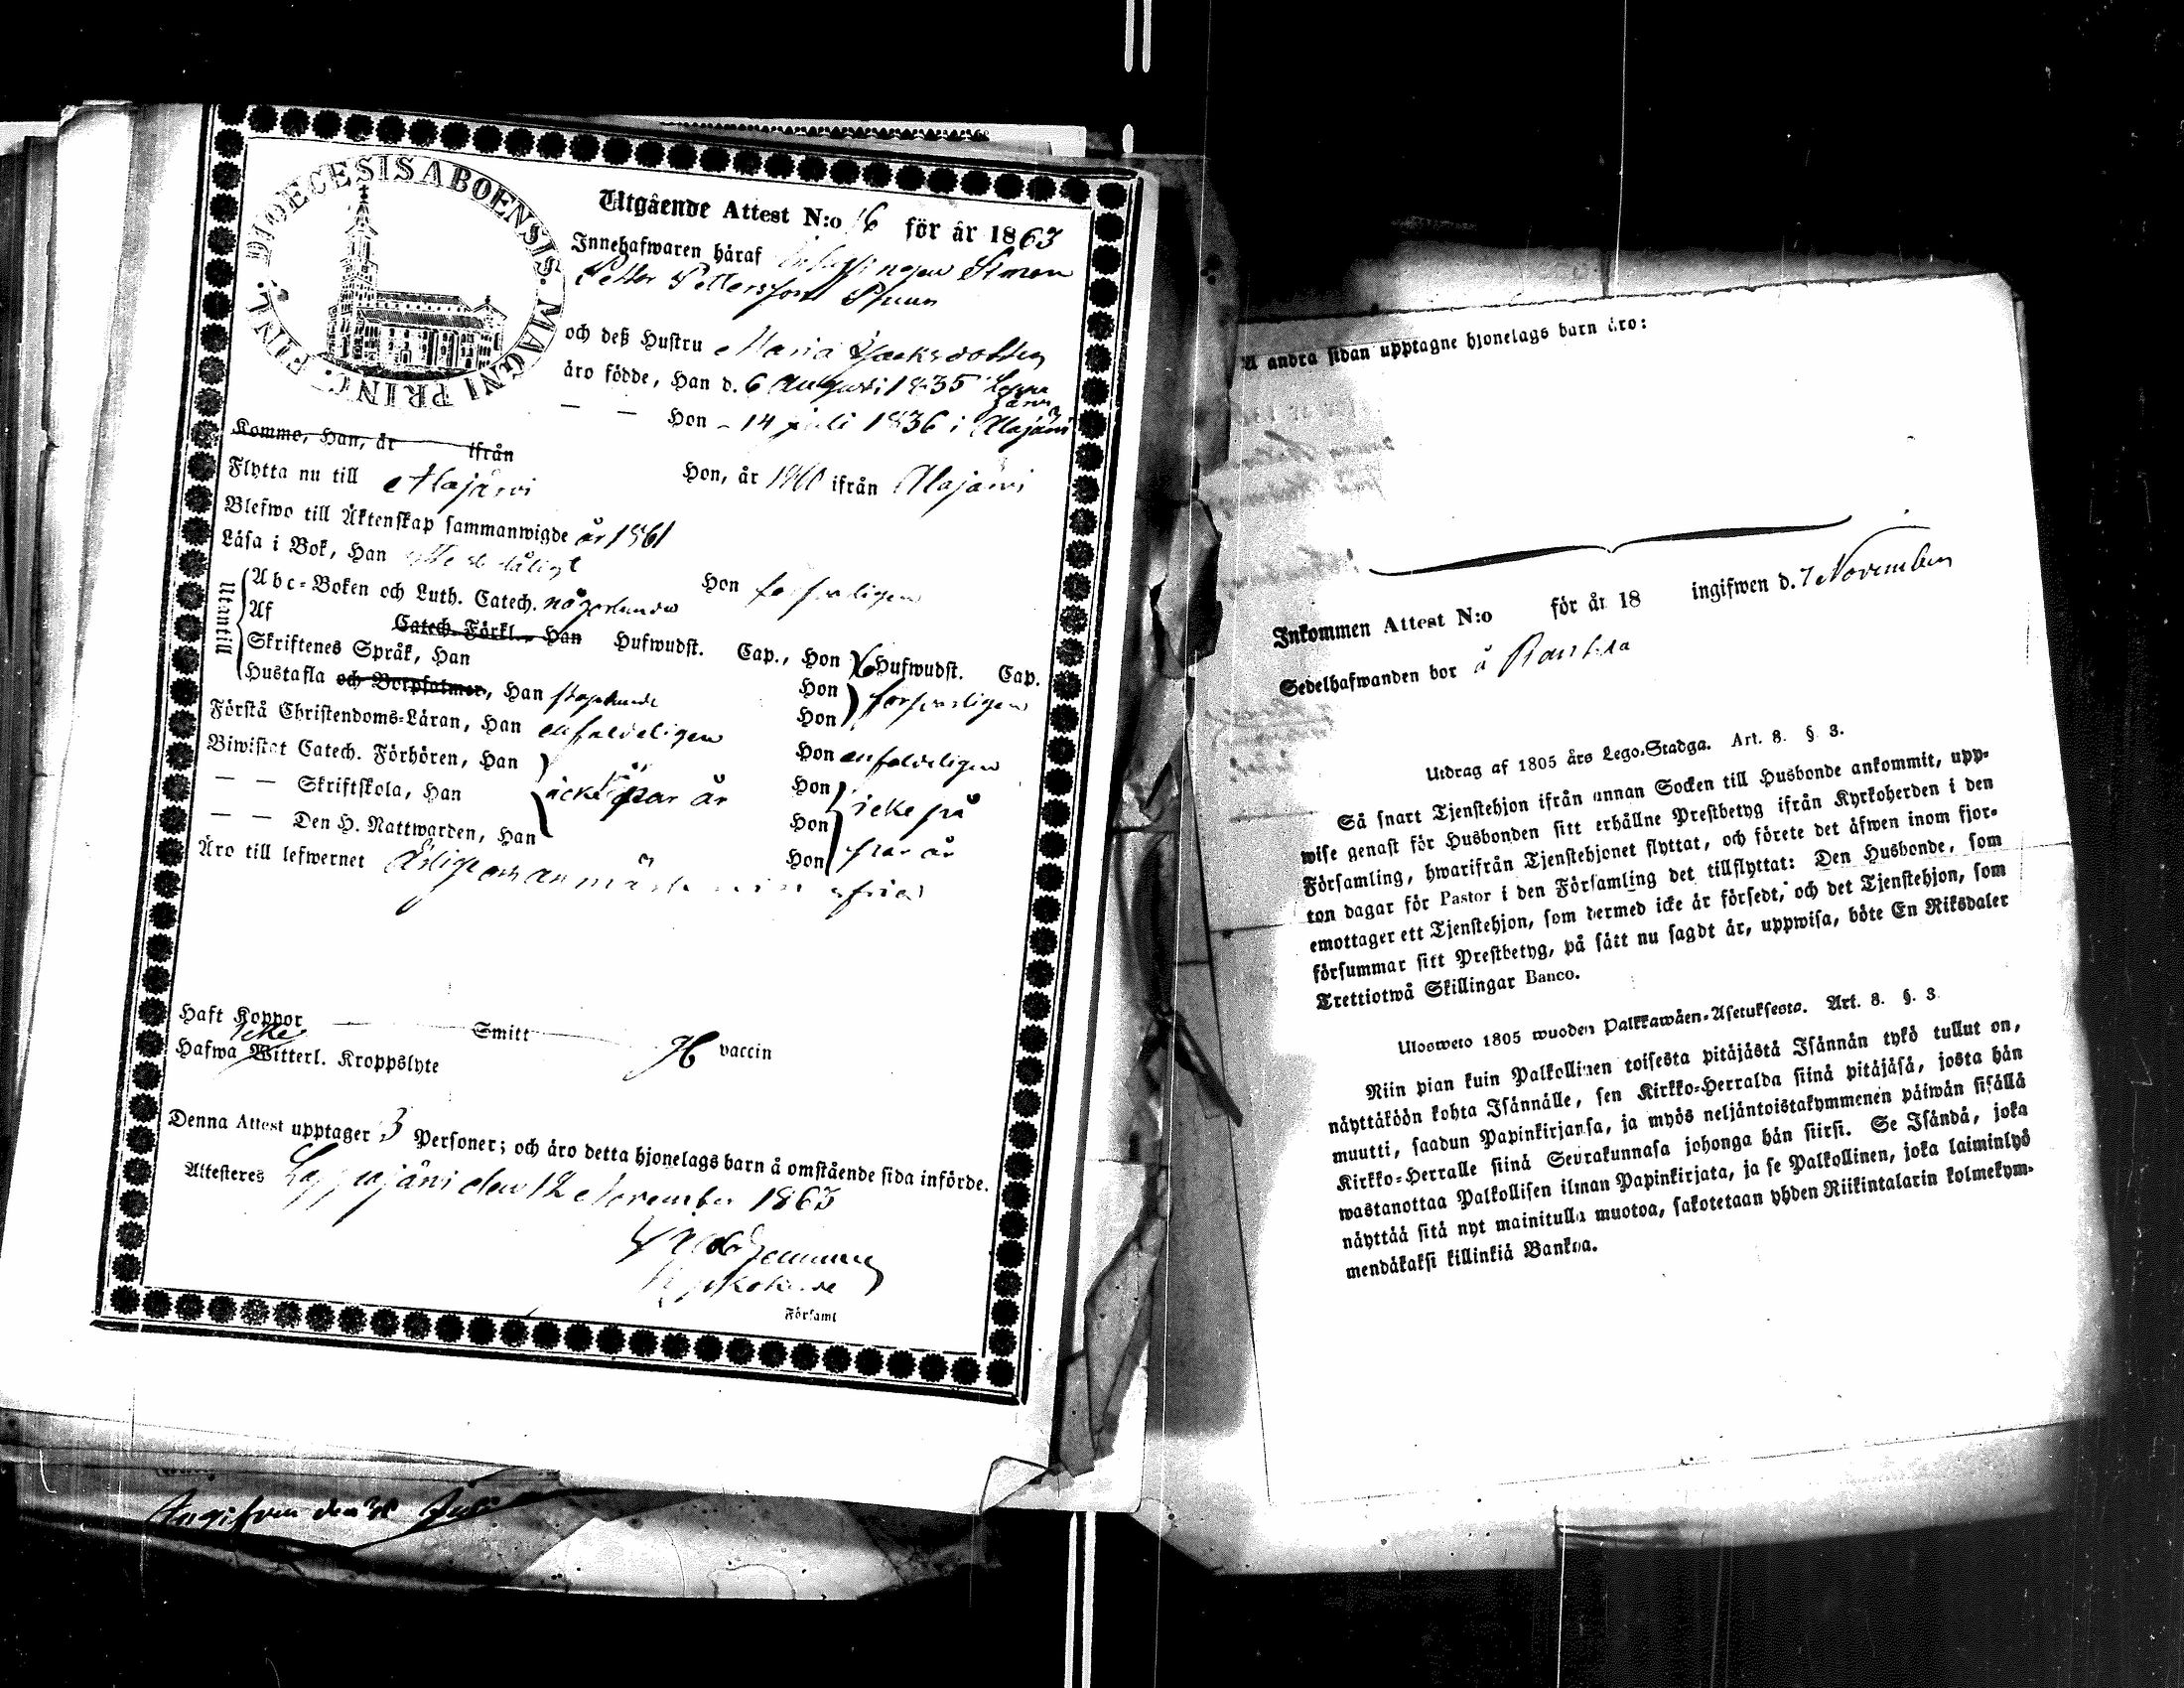 DIOECESIS ABOENSIS. MAGNI PRINC. FINL.
Utgående Attest N:o 16 för år 1863
Innehafwaren häraf Simon
Petter Pettersson
och deß Hustru Maria Jacksdotter
äro födde, Han d. 6 Augusti 1835 Lappajärvi
— — Hon – 14 juli 1836 i Alajärvi
Komme, Han, år ifrån
Hon, år 1860 ifrån Alajärvi
Flytta nu till Alajärvi
Blefwo till Äktenskap sammanwigde år 1861
Läsa i Bok, Han dåligt Hon försvarligen
Utantill
Abc-Boken och Luth. Catech. någorlunda
Af Catech. Förkl., Han Hufwudst. Cap., Hon 6 Hufwudst. Cap.
Skriftenes Språk, Han Hon
Hustafla och Botpsalmer, Han Hon försvarligen
Förstå Christendoms-Läran, Han enfaldeligen Hon enfaldeligen
Biwistat Catech. Förhören, Han Hon
— — Skriftskola, Han icke på par år Hon icke på
— — Den H. Nattwarden, Han Hon par år
Äro till lefwernet ärlige och anmärkninsfria
Haft Koppor Smitt vaccin
icke
Hafwa Witterl. Kroppslyte
Denna Attest upptager 3 Personer; och äro detta hjonelags barn å omstående sida införde.
Attesteres Lappajärvi den 12 November 1863
Kyrkoherde
Församl
Angifven den Juli
Å andra sidan upptagne hjonelags barn äro:
Inkommen Attest N:o för år 18 ingifwen d. 7 November
Sedelhafwanden bor å
Utdrag af 1805 års Lego-Stadga. Art. 8. §. 3.
Så snart Tjenstehjon ifrån annan Socken till Husbonde ankommit, upp-
wise genast för Husbonden sitt erhållne Prestbetyg ifrån Kyrkoherden i den
Församling, hwarifrån Tjenstehjonet flyttat, och förete det äfwen inom fjor-
ton dagar för Pastor i den Församling det tillflyttat: Den Husbonde, som
emottager ett Tjenstehjon, som dermed icke är försedt, och det Tjenstehjon, som
försummar sitt Prestbetyg, på sätt nu sagdt är, uppwisa, böte En Riksdaler
Trettiotwå Skillingar Banco.
Ulosweto 1805 wuoden Palkkawäen-Asetuksesta. Art. 8. §. 3.
Niin pian kuin Palkollinen toisesta pitäjästä Isännän tykö tullut on,
näyttäköön kohta Isännälle, sen Kirkko-Herralda siinä pitäjäsä, josta hän
muutti, saadun Papinkirjansa, ja myös neljäntoistakymmenen päiwän sisällä
Kirkko-Herralle siinä Seurakunnasa johonga hän siirsi. Se Isändä, joka
wastanottaa Palkollisen ilman Papinkirjata, ja se Palkollinen, joka laiminlyö
näyttää sitä nyt mainitulla muotoa, sakotetaan yhden Riikintalarin kolmekym-
mendäkaksi killinkiä Bankoa.